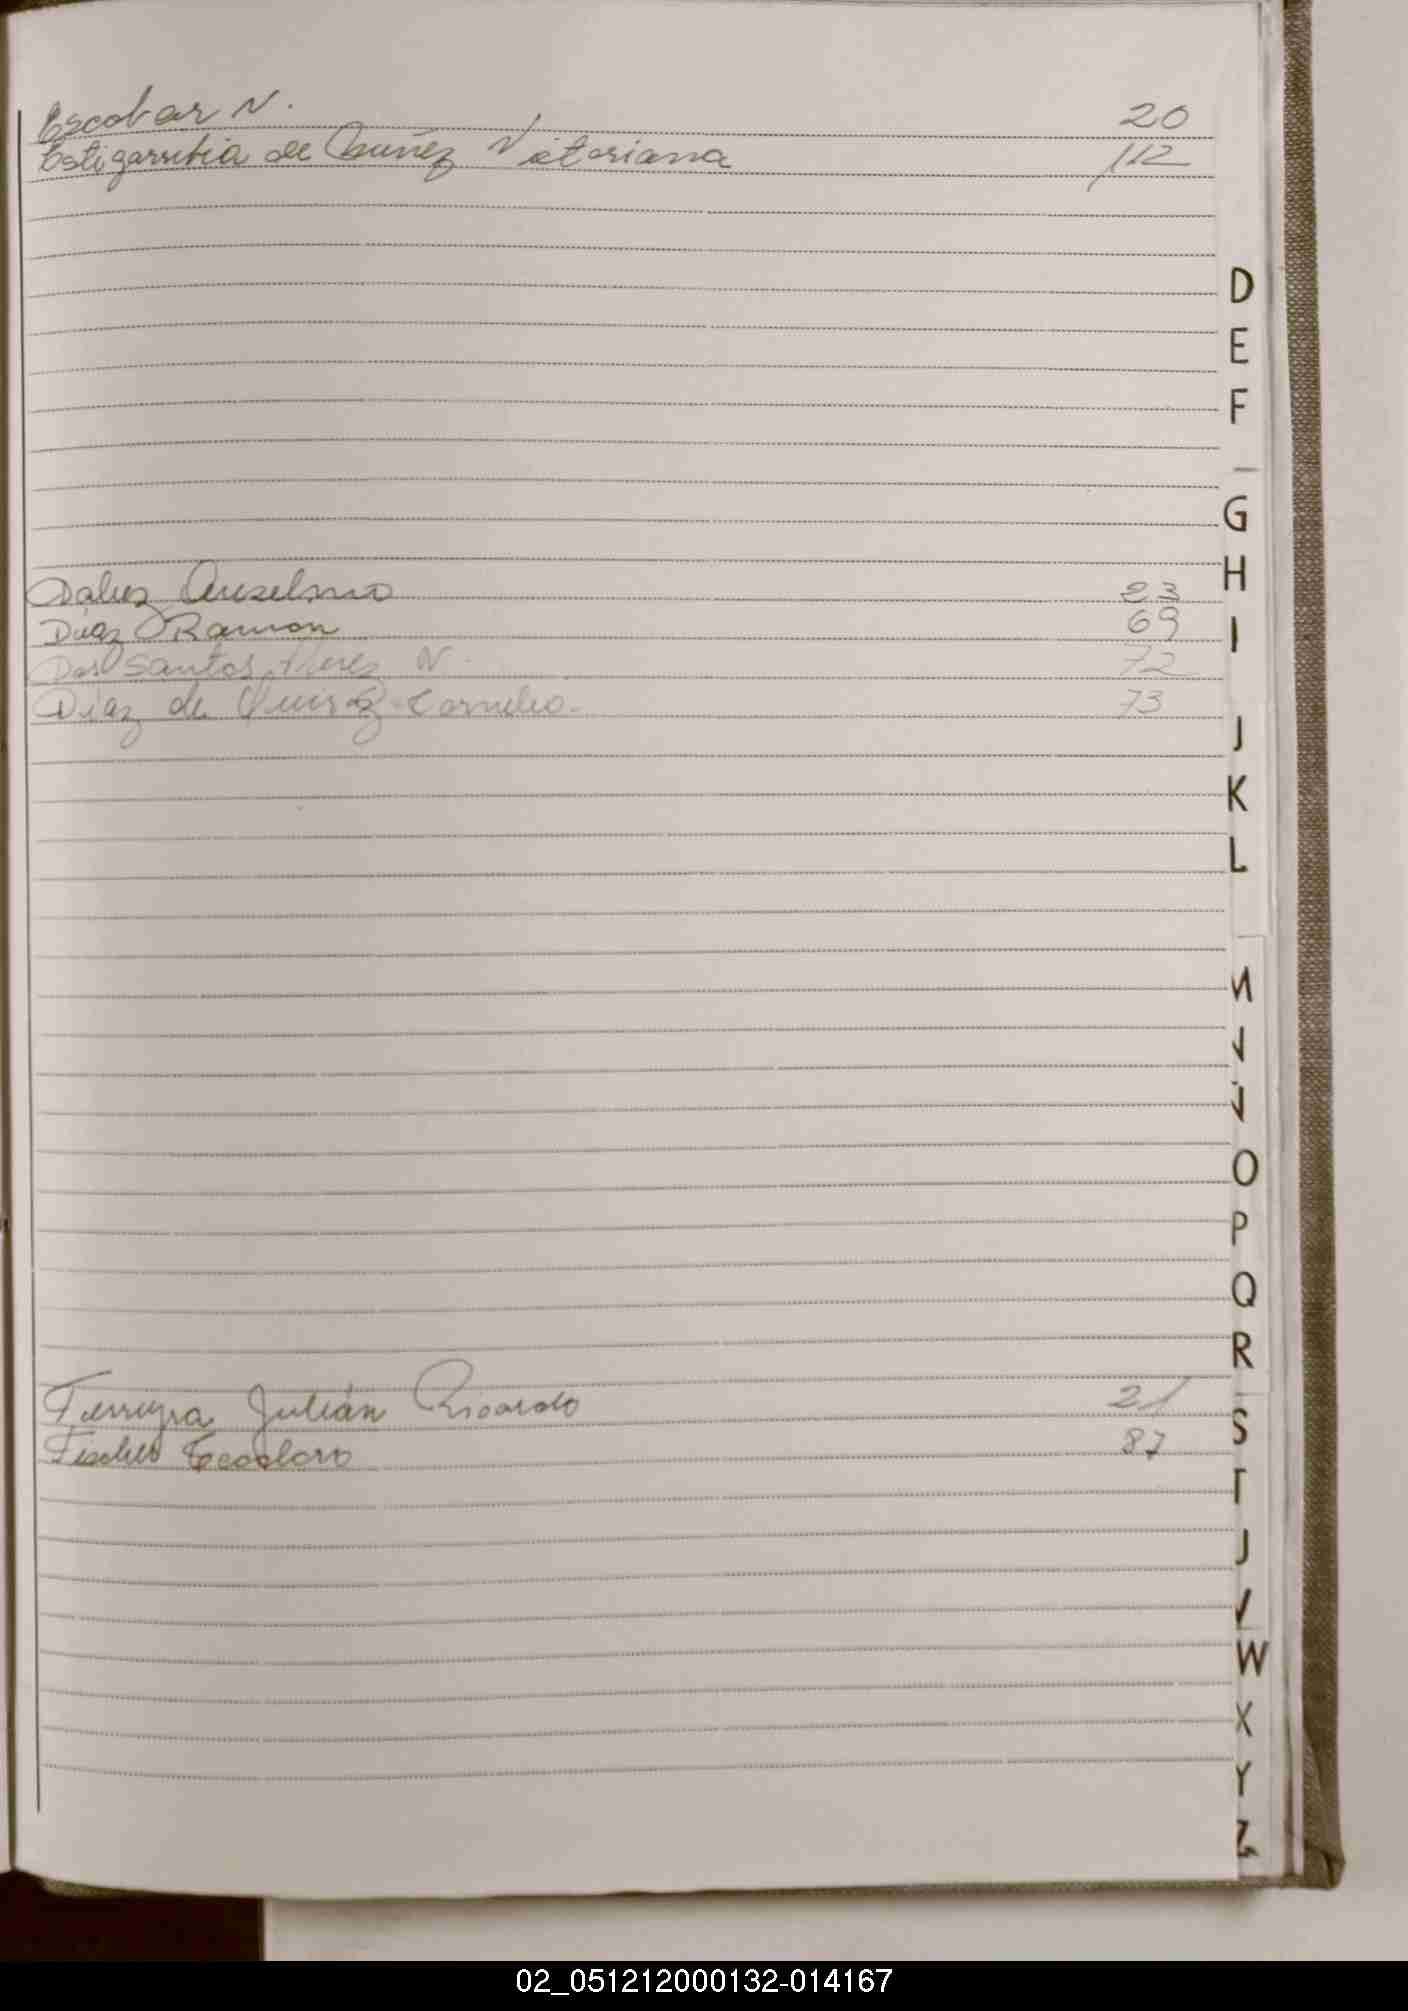 Escobar N. 20
Estigarribia de Nuñez Victoriana 112
Daluz Anselmo 23
Diaz Ramon 69
Dos Santos N. 72
Diaz de Quiroz Cornelio. 73
Ferreyra Julián Ricardo 21
Fischer Teodoro 87
D
E
F
G
H
I
J
K
L
O
P
Q
R
S
W
X
Y
Z
02_051212000132-014167